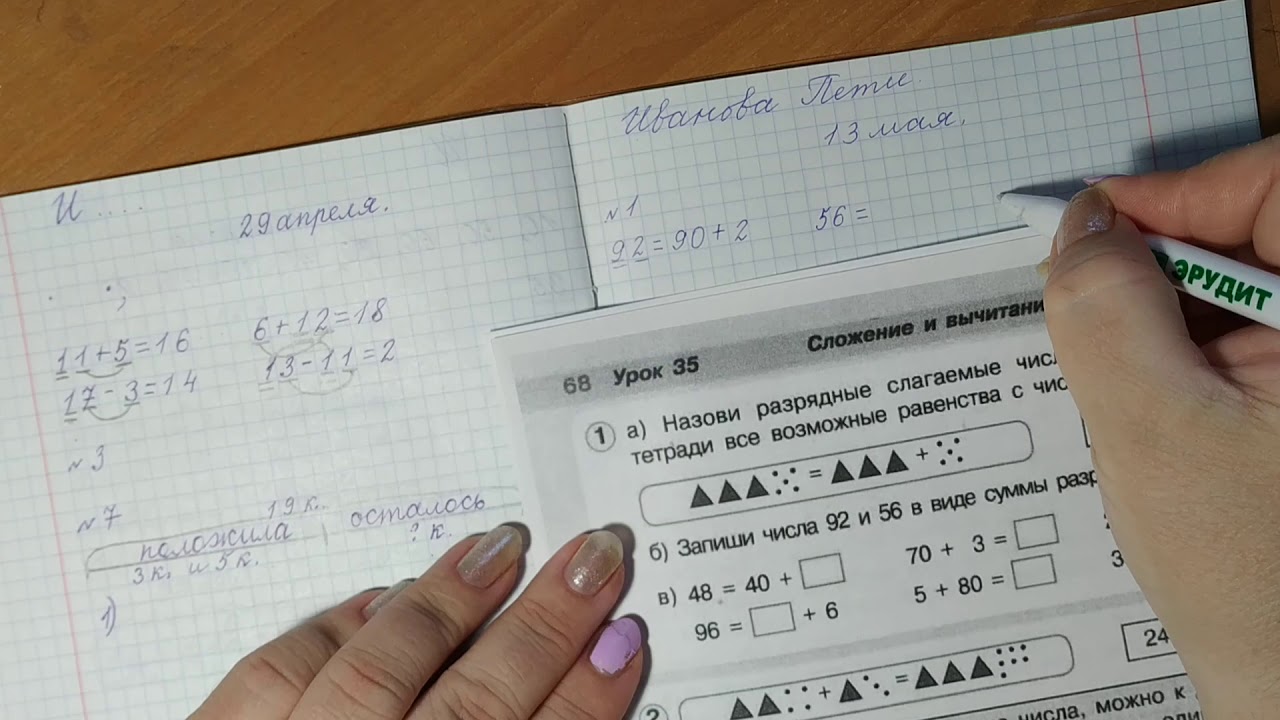 И ....
29 апреля.
11+5=16
6+12=18
17-3=14
13-11=2
№3
№7
19 к.
положила
осталось
3к. и 5к.
? к.
1)
Иванова Пети.
13 мая.
№1
92=90+2
56=
ЭРУДИТ
68 Урок 35
Сложение и вычитани
1 а) Назови разрядные слагаемые чис
тетради все возможные равенства с чис
= +
б) Запиши числа 92 и 56 в виде суммы разр
в) 48 = 40 +
70 + 3 =
96 = + 6
5 + 80 =
3
2
+ =
24
числа, можно к